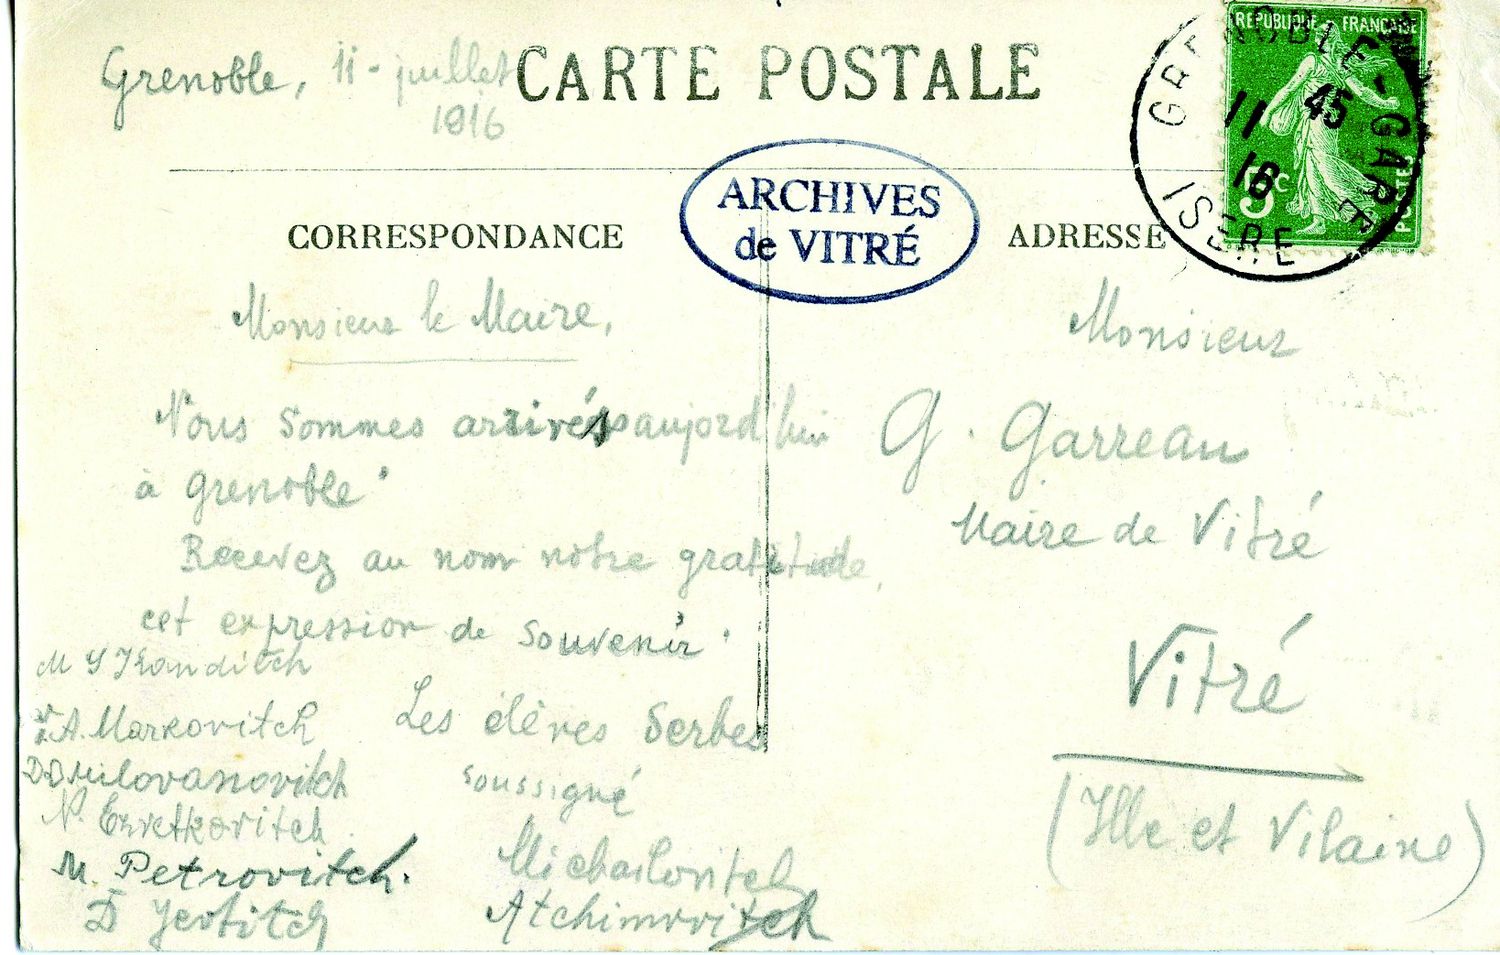 Grenoble, 11 - juillet
1916
CARTE POSTALE
REPUBLIQUE FRANÇAISE
POSTES
5c
GRENOBLE - GARE
11
45
16
ISERE
ARCHIVES
de VITRÉ
CORRESPONDANCE
Monsieur le Maire,
Nous sommes arrivés aujord'hui
à Grenoble.
Recevez au nom notre gratitude,
cet expression de souvenir.
Les élèves Serbes
soussigné
A. Markovitch
D. Milovanovitch
N. Tzvetkovitch
M. Petrovitch.
D Jevtitch
Michailovitch
Atchimovitch
ADRESSE
Monsieur
G. Garreau
Maire de Vitré
Vitré
(Ille et Vilaine)